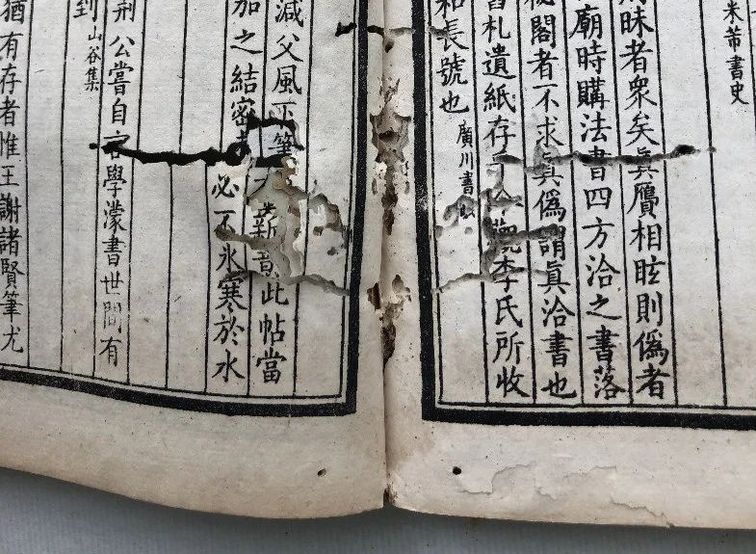 米芾書史
昧者衆矣眞贋相眩則僞者
廟時購法書四方洽之書落
祕閣者不求眞僞謂眞洽書也
書札遺紙存今觀李氏所收
和長號也 廣川書跋
減父風筆新意此帖當
加之結密必不氷寒於水
荆公嘗自言學濛書世間有
到 山谷集
猶有存者惟王謝諸賢筆尤